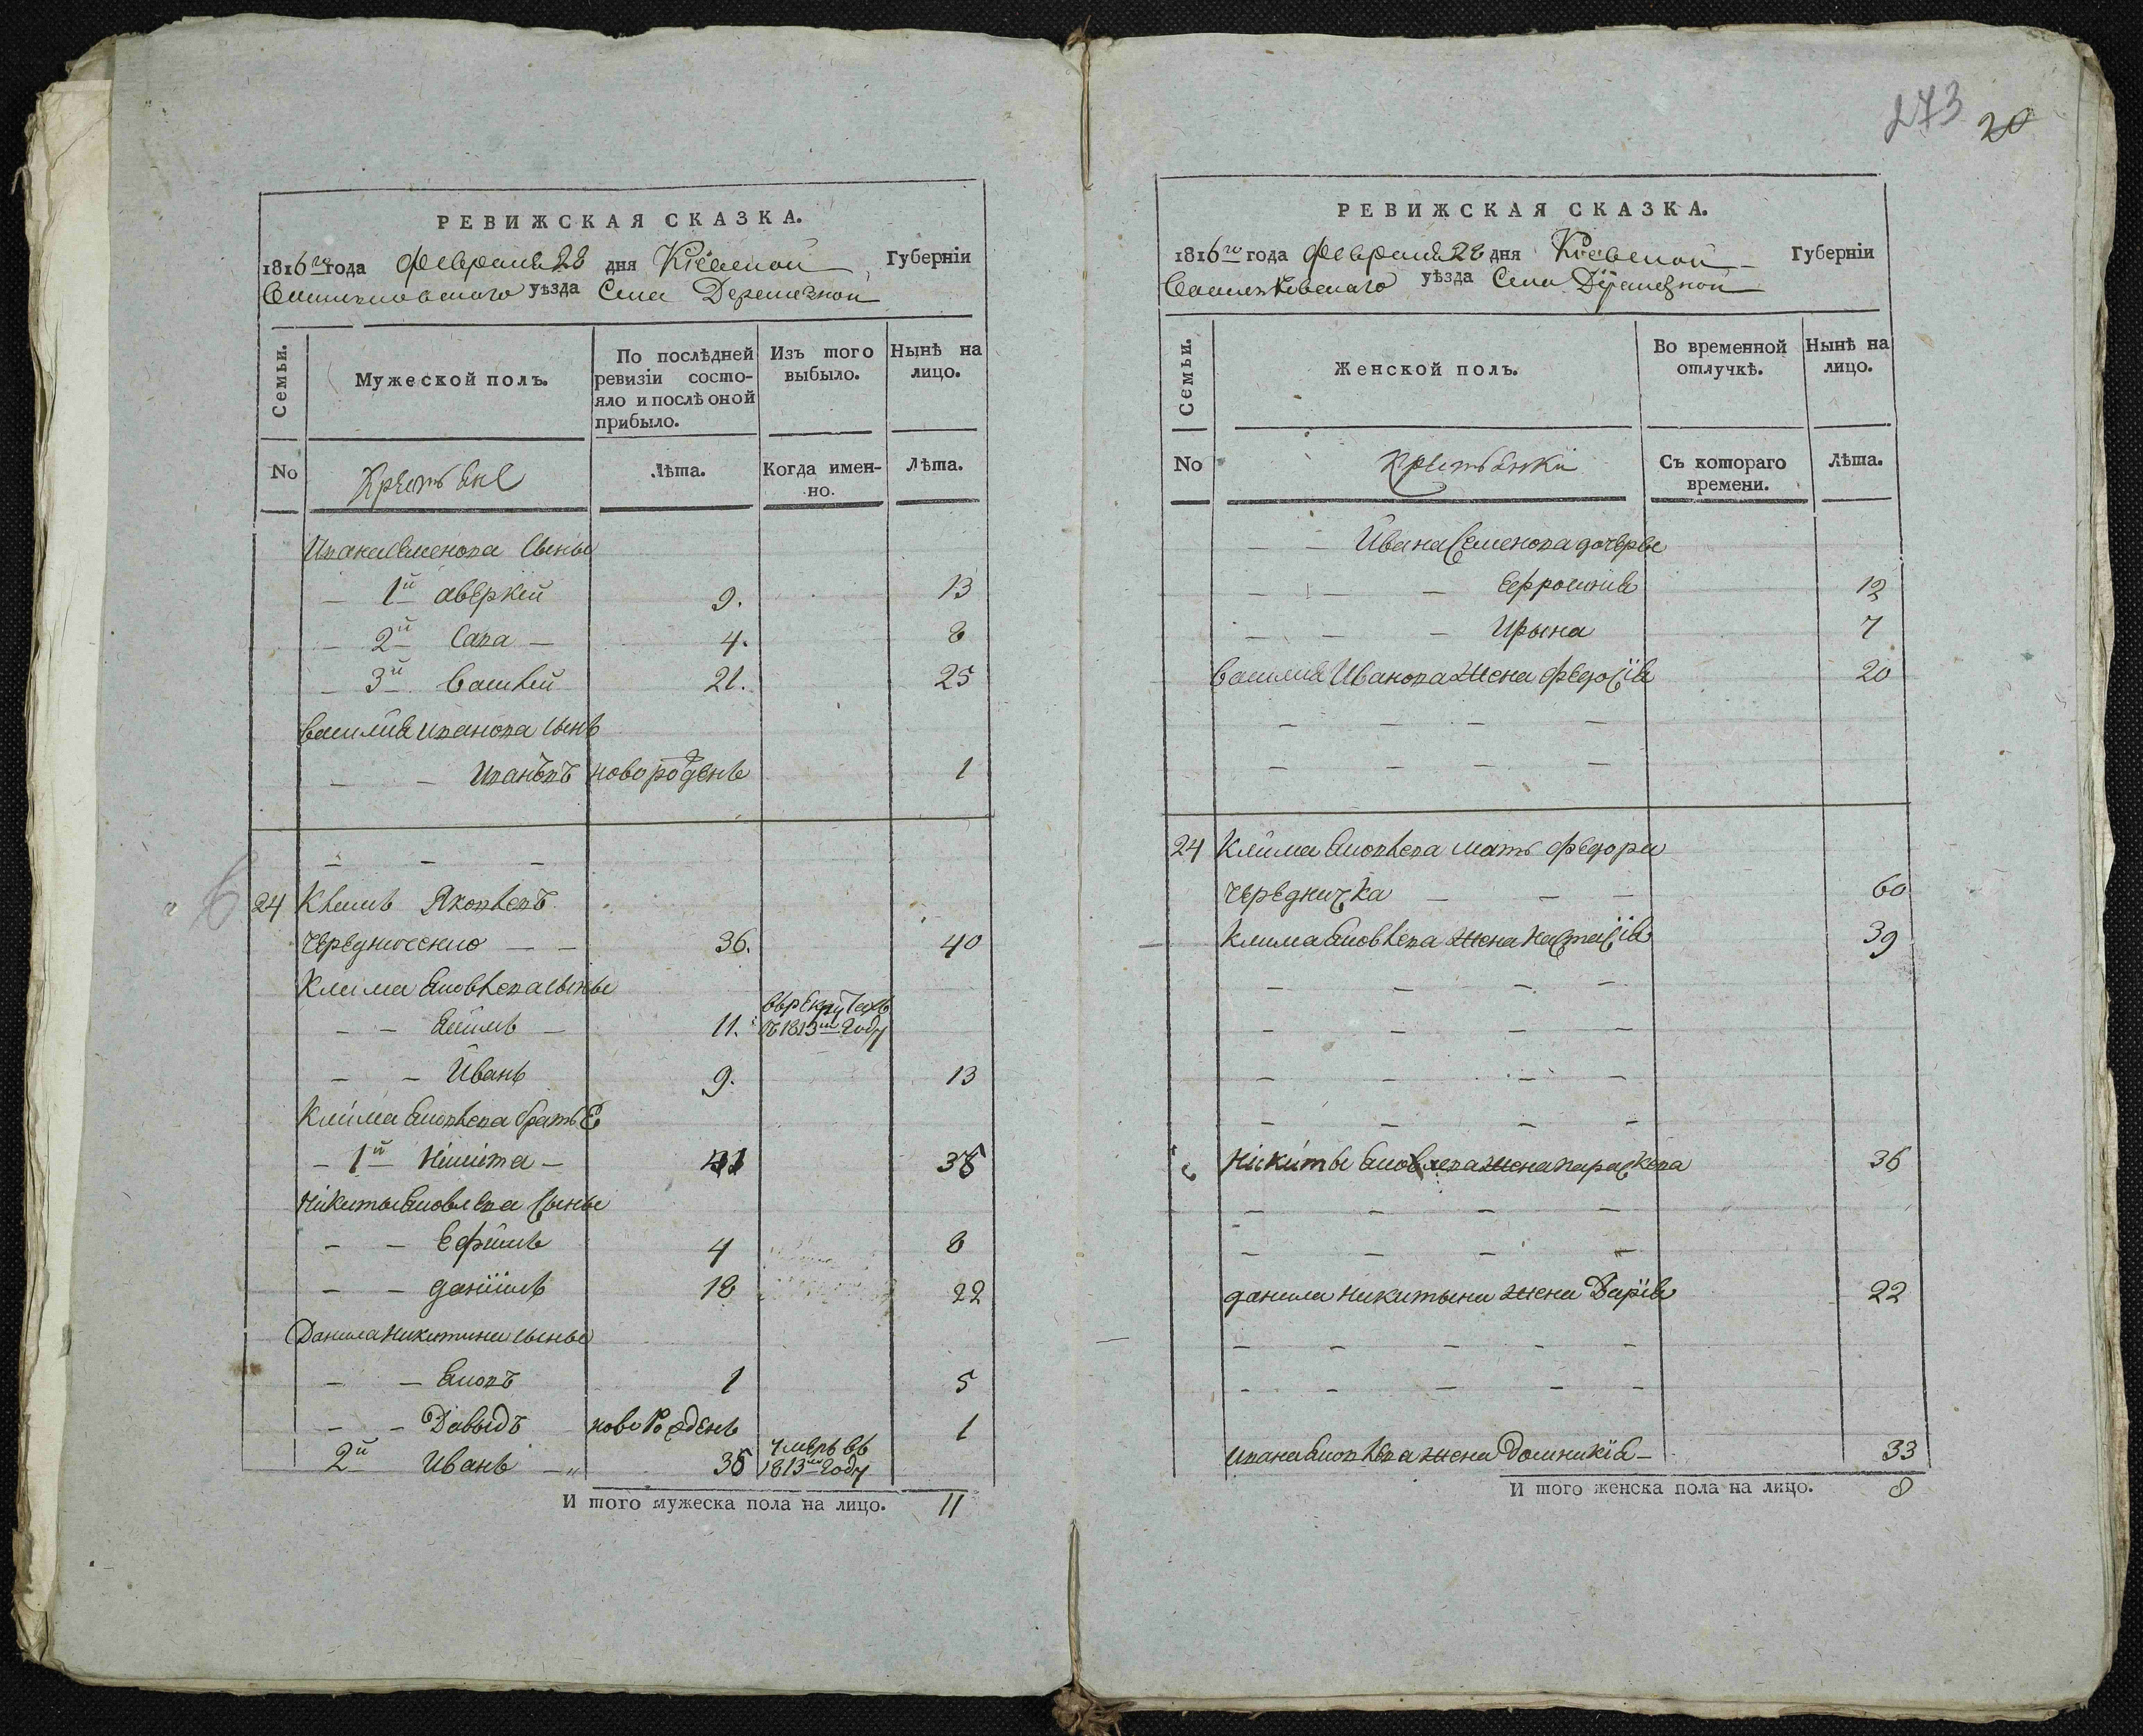 273 20
РЕВИЖСКАЯ СКАЗКА.
1816го года Февраля 28 дня Кіевской Губерніи
Василковского уѣзда Села Деремезной
Семьи.
Мужеской полъ.
По послѣдней ревизіи состо-
яло и послѣ оной
прибыло.
Изъ того
выбыло.
Нынѣ на
лицо.
No
Крестьяне
Лѣта.
Когда имен-
но.
Лѣта.
Ивана Семенова сыны
1й аверкей 9. 13
2й Сава 4. 8
3й Василей 21. 25
василия иванова сынъ
иванъ новорожденъ 1
24 Климъ Яковлевъ
Чередниченко 36. 40
Клима Яковлева сыны
Якимъ 11. въ рекрутахъ
въ 1813м году
Иванъ 9. 13
Клима Яковлева братья
1й Никита 35
Никиты Яковлева сыны
Ефимъ 4 8
даніилъ 18 22
Данила Никитина сыны
Яковъ 1 5
Давыдъ новорожденъ 1
2й Иванъ 35 умеръ въ
1813м году
И того мужеска пола на лицо. 11
РЕВИЖСКАЯ СКАЗКА.
1816го года Февраля 28 дня Кіевской Губерніи
Василковского уѣзда Села Деремезной
Семьи.
Женской полъ.
Во временной
отлучкѣ.
Нынѣ на
лицо.
No
Крестьянки
Съ котораго
времени.
Лѣта.
Ивана Семенова дочери
Ефросинія 12
Ирына 7
василия Иванова жена федосія 20
24 Клима Яковлева мать федора
чередничка 60
Клима Яковлева жена настасія 39
Никиты Яковлева жена параскева 36
данила никитына жена Дарія 22
ивана Яковлева жена Домникія 33
И того женска пола на лицо. 8